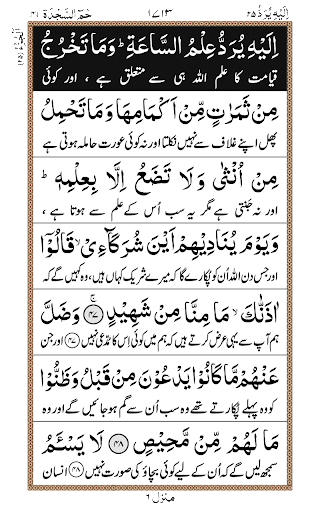 اِلَیْهِ یُرَدُّ ۲۵ ۱۷۱۳ حٰمٓ السَّجْدَۃ ۴۱
اَلْجُزْءُ (۲۵)
اِلَیْهِ یُرَدُّ عِلْمُ السَّاعَةِ ؕ وَمَا تَخْرُجُ
قیامت کا علم اللہ ہی سے متعلق ہے ، اور کوئی
مِنْ ثَمَرٰتٍ مِّنْ اَكْمَامِهَا وَمَا تَحْمِلُ
پھل اپنے غلاف سے نہیں نکلتا اور نہ کوئی عورت حاملہ ہوتی ہے
مِنْ اُنْثٰی وَلَا تَضَعُ اِلَّا بِعِلْمِهٖ ؕ
اور نہ جَنتی ہے مگر یہ سب اُس کے علم سے ہوتا ہے ،
وَیَوْمَ یُنَادِیْهِمْ اَیْنَ شُرَكَآءِیْ ۙ قَالُوْۤا
اور جس دن اللہ اُن کو پکارے گا کہ میرے شریک کہاں ہیں، وہ کہیں گے کہ
اٰذَنّٰكَ ۙ مَا مِنَّا مِنْ شَهِیْدٍ ۚ ﴿۴۷﴾ وَضَلَّ
ہم آپ سے یہی عرض کرتے ہیں کہ ہم میں کوئی اِس کا مُدعی نہیں ﴿۴۷﴾ اور جن
عَنْهُمْ مَّا كَانُوْا یَدْعُوْنَ مِنْ قَبْلُ وَظَنُّوْا
کو وہ پہلے پکارتے تھے وہ سب اُن سے گم ہو جائیں گے اور وہ
مَا لَهُمْ مِّنْ مَّحِیْصٍ ﴿۴۸﴾ لَا یَسْـَٔمُ
سمجھ لیں گے کہ اُن کے لیے کوئی بچاؤ کی صورت نہیں ﴿۴۸﴾ انسان
منزل ۶